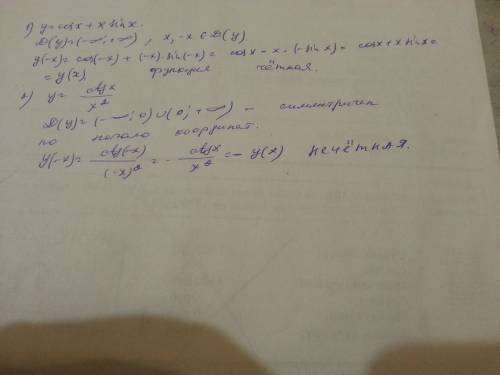 1) y = cosx + x sinx.
D(y) = (-∞; +∞), x, -x ∈ D(y)
y(-x) = cos(-x) + (-x)·sin(-x) = cosx - x·(-sinx) = cosx + x sinx =
= y(x), функция чётная.
2) y = ctgx / x²
D(y) = (-∞; 0) ∪ (0; +∞) - симметричен
по начало координат.
y(-x) = ctg(-x) / (-x)² = - ctgx / x² = - y(x) нечётная.